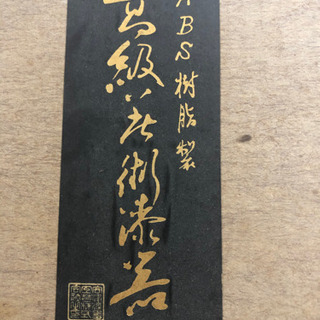 ABS樹脂製
高級美術漆器